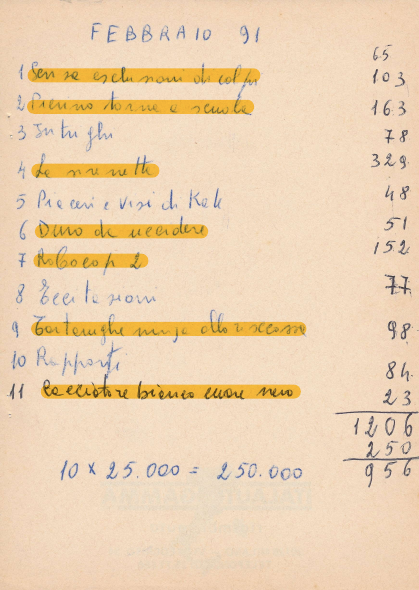 FEBBRAIO 91
65
1 Senza esclusione di colpi 103
2 Pierino torna a scuola 163
3 Intrighi 78
4 La sirenetta 329
5 Piaceri e vizi di 48
6 Duro da uccidere 51
7 Robocop 2 152
8 Eccitazioni 77
9 Tartarughe ninja alla riscossa 98
10 Rapporti 84
11 Cacciatore bianco cuore nero 23
1206
250
10 x 25.000 = 250.000 956